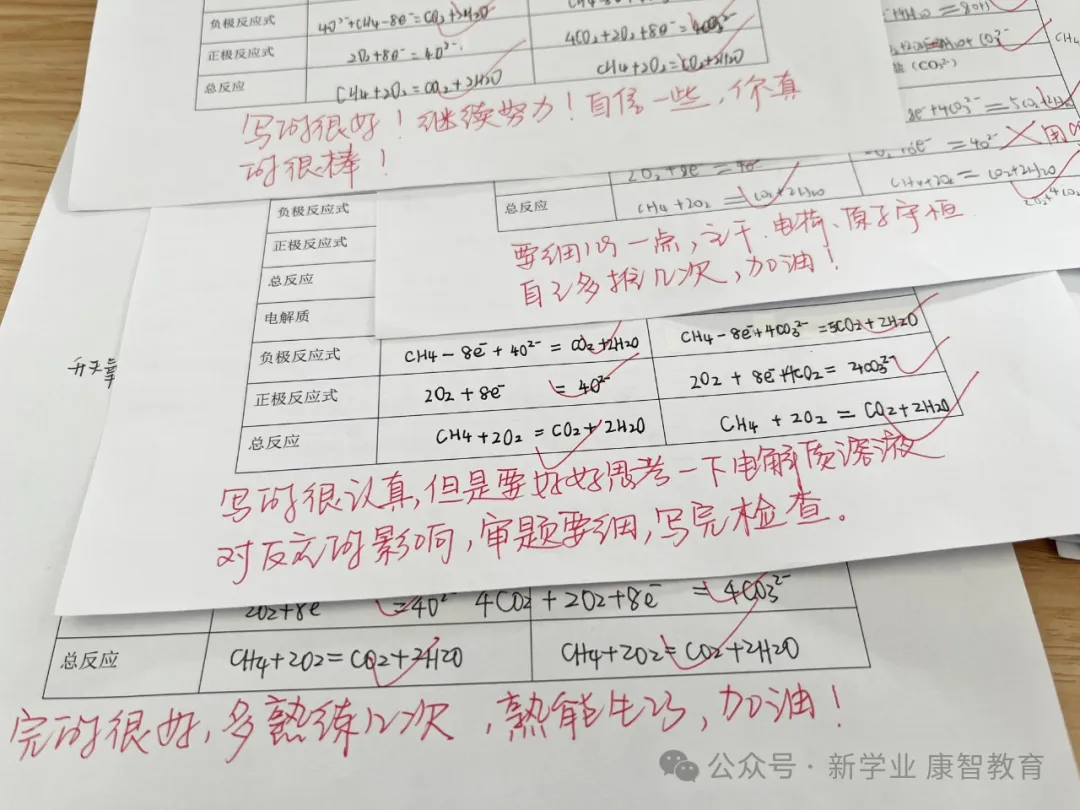 负极反应式 4O²⁻+CH4-8e⁻=CO2+2H2O
正极反应式 2O2+8e⁻=4O²⁻ 4CO2+2O2+8e⁻=4CO3²⁻
总反应 CH4+2O2=CO2+2H2O CH4+2O2=CO2+2H2O
写的很好！继续努力！自信一些，你真
的很棒！
(CO3²⁻)
8e⁻+4CO3²⁻=5CO2+2H2O
2O2+8e⁻=4O²⁻ =4O²⁻ ×用
总反应 CH4+2O2=CO2+2H2O CH4+2O2=CO2+2H2O
要细心一点，电荷、原子守恒
自己多推几次，加油！
负极反应式
正极反应式
总反应
电解质
负极反应式 CH4-8e⁻+4O²⁻=CO2+2H2O CH4-8e⁻+4CO3²⁻=5CO2+2H2O
正极反应式 2O2+8e⁻=4O²⁻ 2O2+8e⁻+4CO2=24CO3²⁻
总反应 CH4+2O2=CO2+2H2O CH4+2O2=CO2+2H2O
写的很认真，但是要好好思考一下电解质溶液
对反应的影响，审题要细，写完检查。
2O2+8e⁻=4O²⁻ 4CO2+2O2+8e⁻=4CO3²⁻
总反应 CH4+2O2=CO2+2H2O CH4+2O2=CO2+2H2O
完的很好，多熟练几次，熟能生巧，加油！
公众号·新学业 康智教育